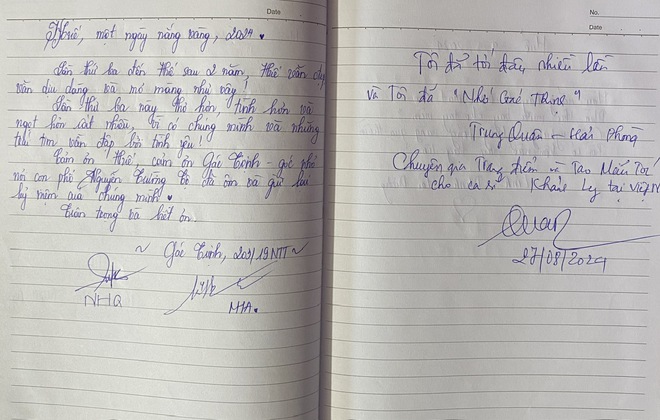 Date
Huế, một ngày nắng vàng, 2024.
Lần thứ ba đến Huế sau 2 năm, Huế vẫn
vẫn dịu dàng và mơ màng như vậy!
Lần thứ ba này thơ hơn, tình hơn và
ngọt hơn rất nhiều, vì có chúng mình và những
trái tim vẫn đập bởi tình yêu!
Cảm ơn Huế, cảm ơn Gác Trịnh - góc nhỏ
nơi con phố Nguyễn Trường Tộ đã ôm và giữ lấy
kỷ niệm của chúng mình.
Trân trọng và biết ơn.
~ Gác Trịnh, 203/19 NTT ~
NHQ
MHA.
No.
Date
Tôi đã tới đây nhiều lần
và Tôi đã "Nhớ Gác Trịnh"
Trung Quân - Hải Phòng
Chuyên gia Trang điểm và Tạo Mẫu Tóc
cho ca sĩ Khánh Ly tại Việt N
Quan
27/08/2024